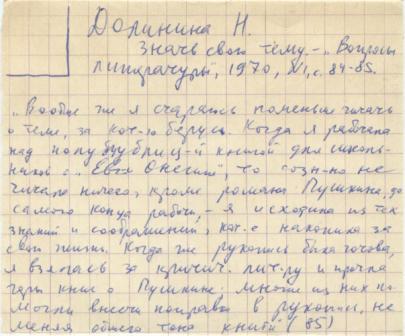 Долинина Н.
Знать свою тему. – „Вопросы
литературы", 1970, №1, с. 84-85.
„Вообще же я стараюсь поменьше читать
о теме, за кот-ю берусь. Когда я работала
над полупублиц-й книгой для школь-
ников о „Евг. Онегине", то созн-но не
читала ничего, кроме романа Пушкина, до
самого конца работы, – я исходила из тех
знаний и соображений, кот-е накопила за
свою жизнь. Когда же рукопись была готова,
я взялась за критич. лит-ру и прочла
гору книг о Пушкине: многие из них по-
могли внести поправки в рукопись, не
меняя общего тона книги" (85)